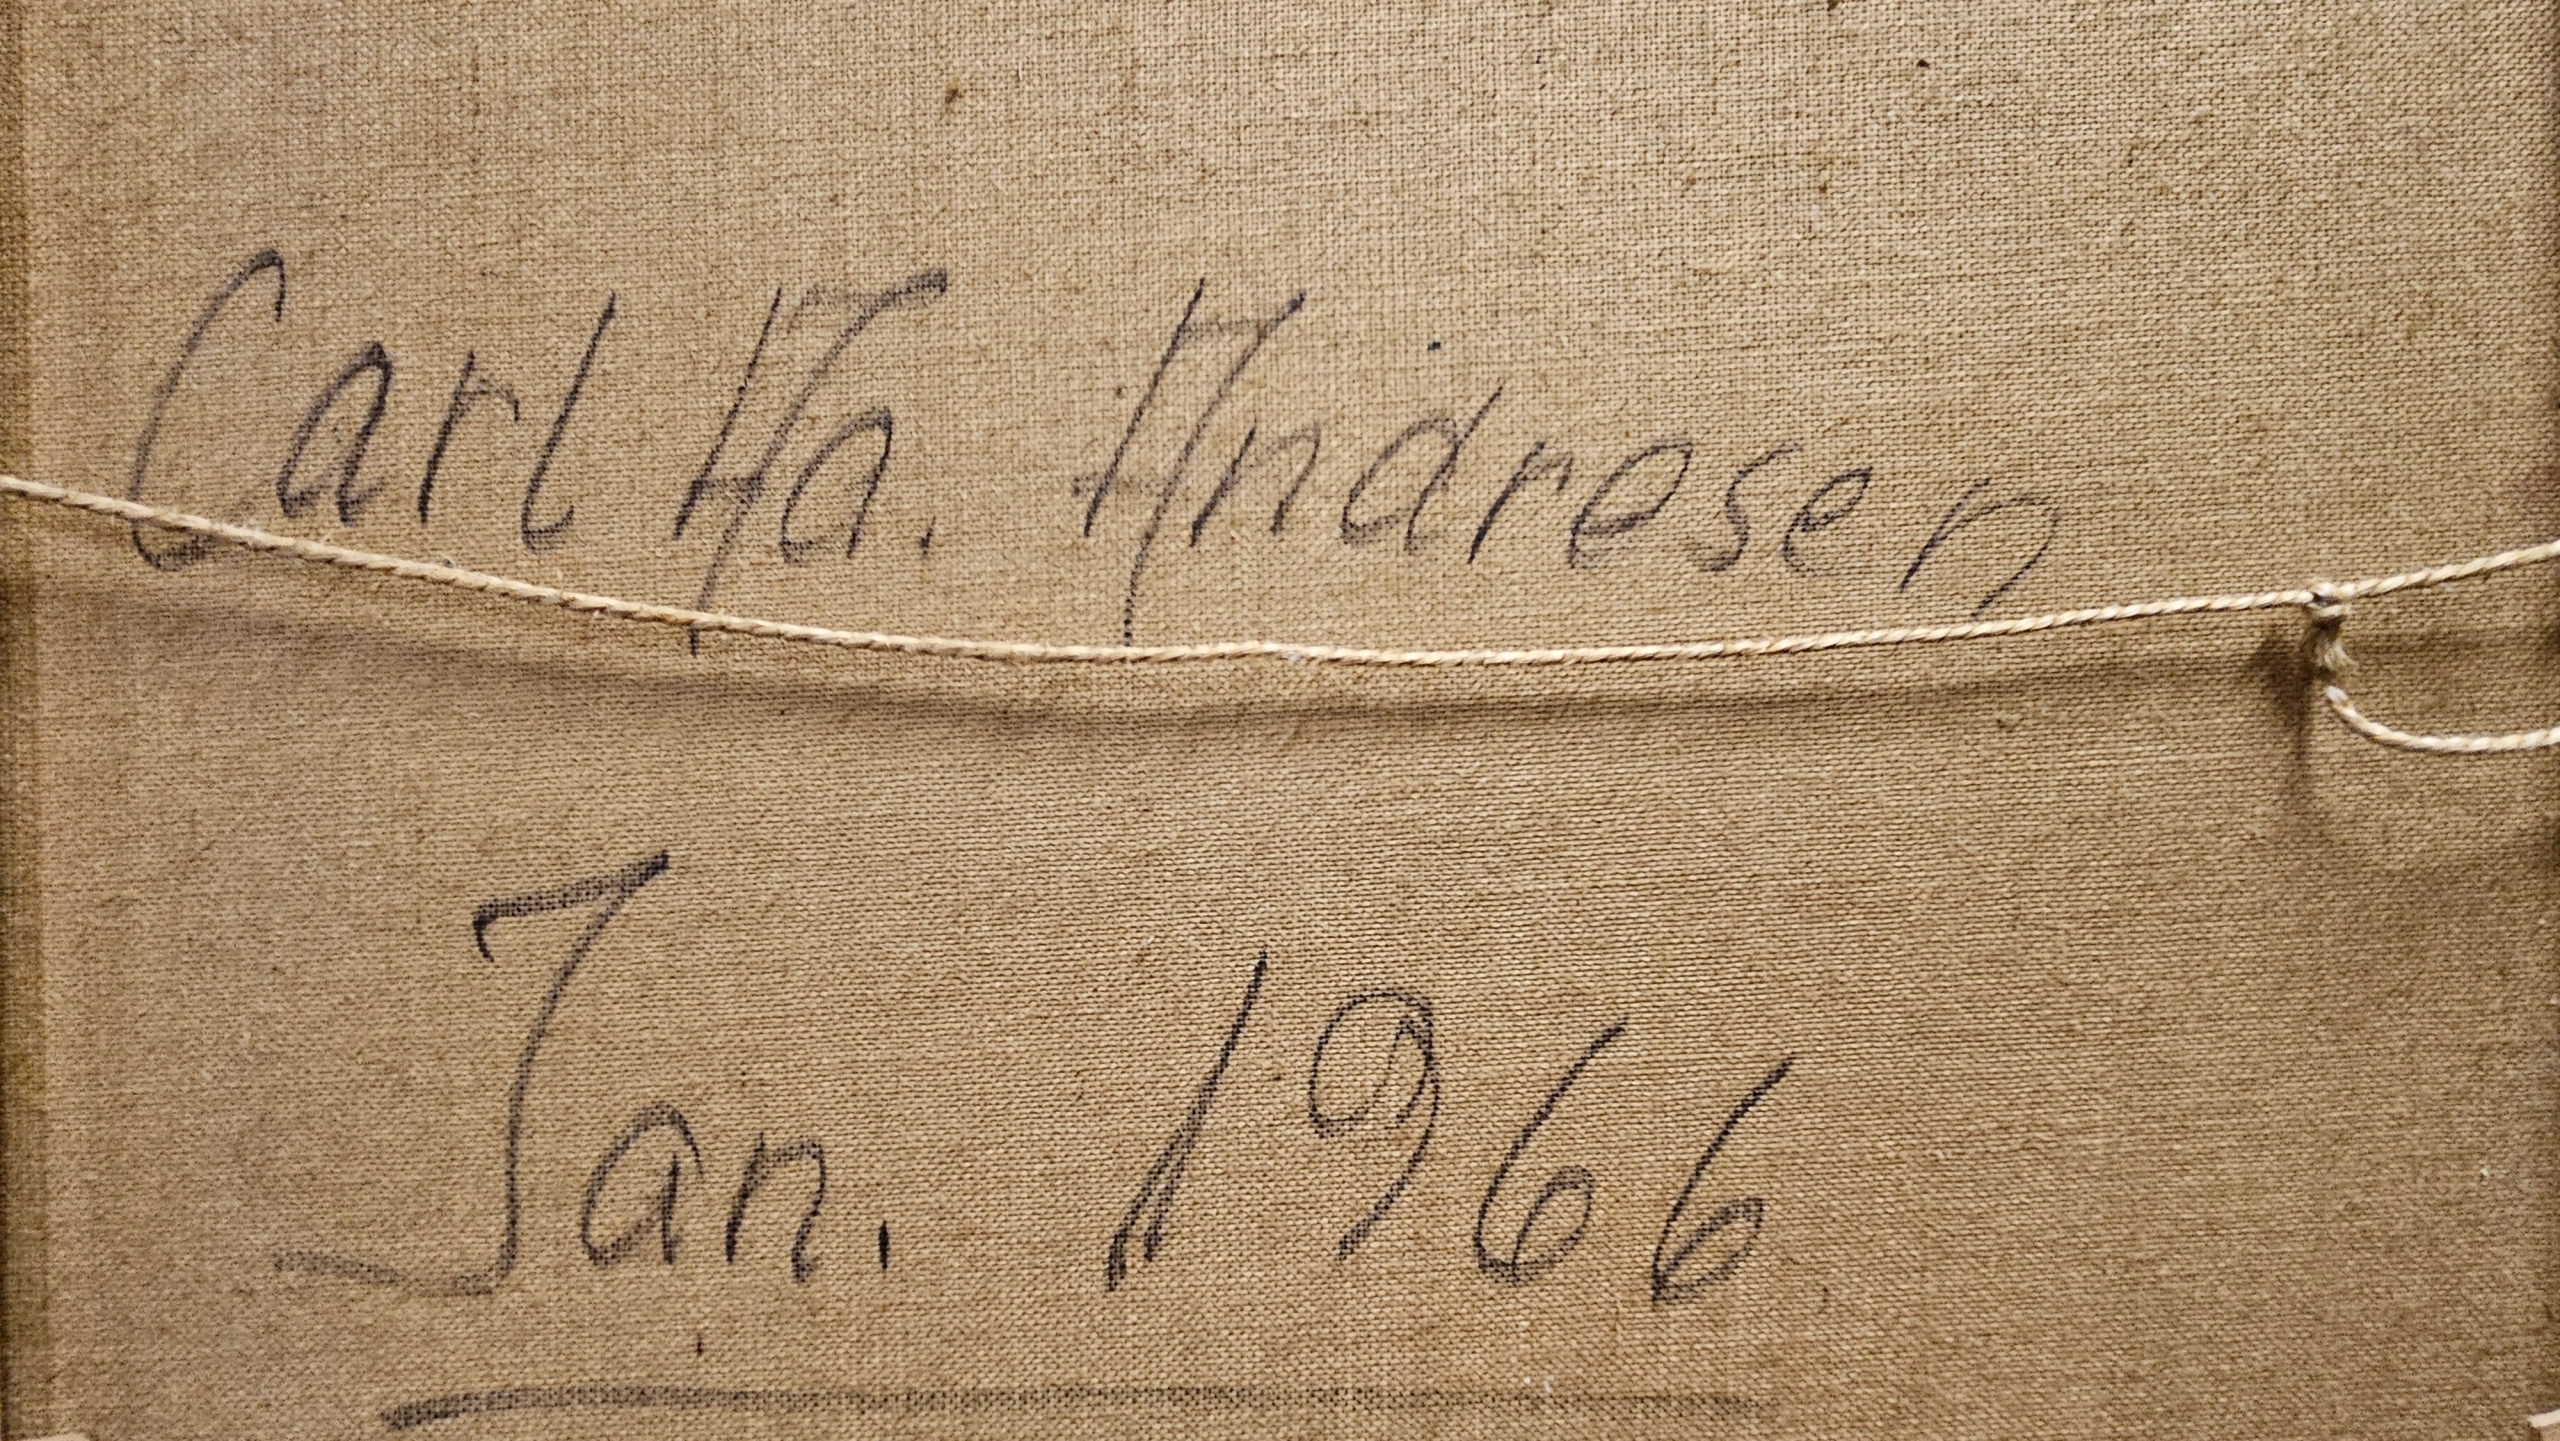 Carl Ha. Andresen
Jan. 1966